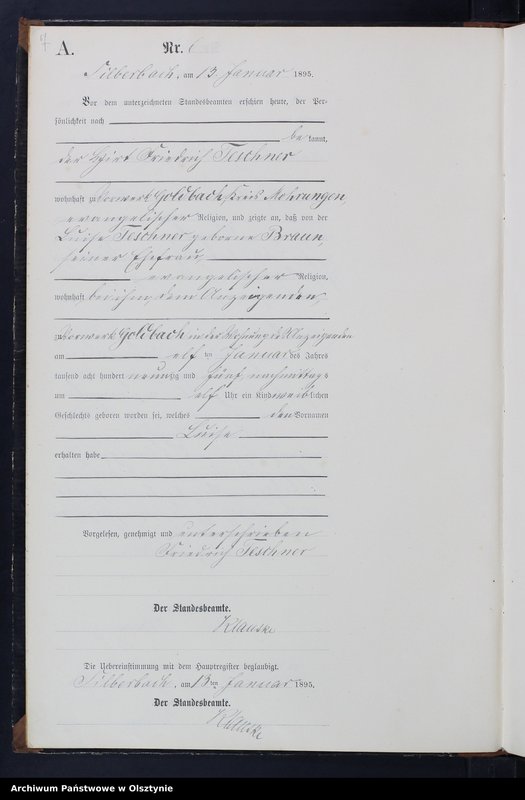 A. Nr. 6
Silberbach, am 13 Januar 1895.
Vor dem unterzeichneten Standesbeamten erschien heute, der Per-
sönlichkeit nach
be kannt,
der Hirt Friedrich Teschner
wohnhaft zu Vorwerk Goldbach Kreis Mohrungen
evangelischer Religion, und zeigte an, daß von der
Luise Teschner geborene Braun
seiner Ehefrau
evangelischer Religion,
wohnhaft bei ihm dem Anzeigenden
zu Vorwerk Goldbach in der Wohnung des Anzeigenden
am elf ten Januar des Jahres
tausend acht hundert neunzig und fünf nachmittags
um elf Uhr ein Kind weiblichen
Geschlechts geboren worden sei, welches den Vornamen
Luise
erhalten habe
Vorgelesen, genehmigt und unterschrieben
Friedrich Teschner
Der Standesbeamte.
Klauske
Die Uebereinstimmung mit dem Hauptregister beglaubigt.
Silberbach, am 13ten Januar 1895.
Der Standesbeamte.
Klauske
Archiwum Państwowe w Olsztynie